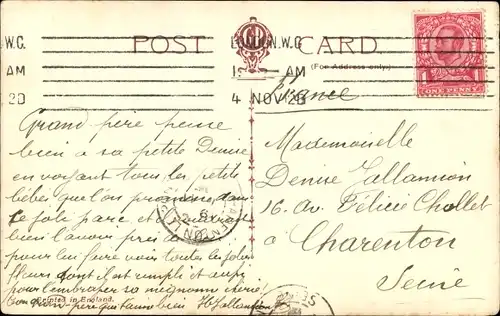 W.C.
AM
20
POST
LONDON. W.C
AM
4 NOV 20
CARD.
(For Address only)
ONE PENNY
France
Grand père pense
bien à sa petite Denise
en voyant tous les petits
bébés que l'on promène dans
ce joli parc et
bien l'avoir près
pour lui faire voir toutes les jolies
fleurs dont il est rempli et aussi
pour embrasser sa mignonne chérie!
Ton grand-père qui t'aime bien
Printed in England.
CHARENTON
Mademoiselle
Denise Jallamion
16. Av. Félicie Chollet
à Charenton
Seine